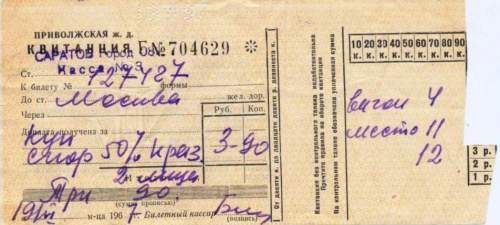 ПРИВОЛЖСКАЯ ж. д.
КВИТАНЦИЯ Б № 704629 *
САРАТОВ Город ОВС
Касса № 3
Ст.
К билету № 427487 формы
До ст. Москва
Через
жел. дор.
Руб. Коп.
Доплата получена за
куп
скор 50% краз. 3-90
2 места
Три 90
(сумма прописью)
19 м-ца 1967 Билетный кассир
(подпись)
От десяти к. по квитанции недействительна
Квитанция без контрольного талона недействительна
Прочтите правила на обороте квитанции
На контрольном талоне обозначена уплаченная сумма
10 к. 20 к. 30 к. 40 к. 50 к. 60 к. 70 к. 80 к. 90 к.
вагон 4
место 11
12
3 р.
2 р.
1 р.